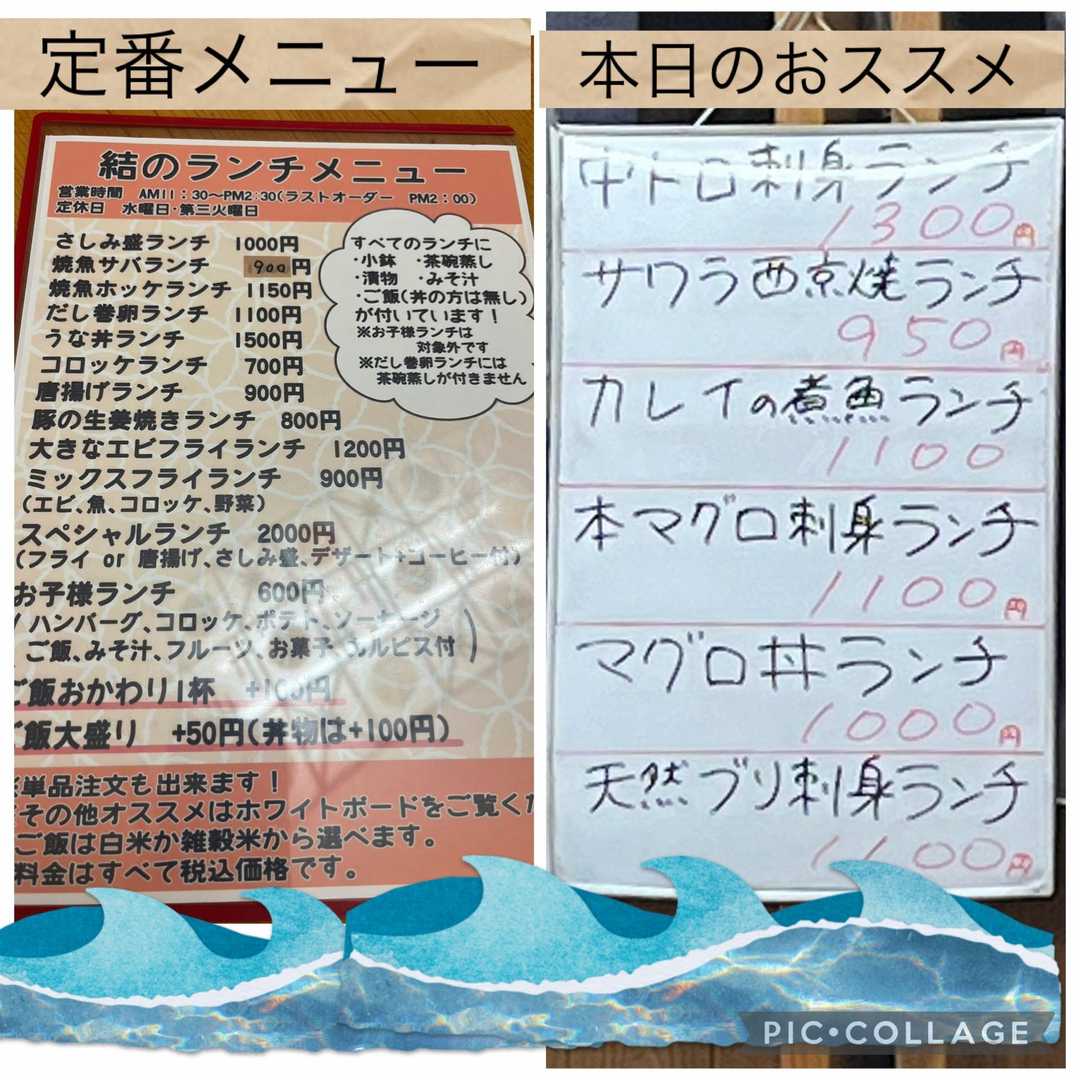 定番メニュー
結のランチメニュー
営業時間 AM11:30～PM2:30(ラストオーダー PM2:00)
定休日 水曜日・第三火曜日
さしみ盛ランチ 1000円
焼魚サバランチ 900円
焼魚ホッケランチ 1150円
だし巻卵ランチ 1100円
うな丼ランチ 1500円
コロッケランチ 700円
唐揚げランチ 900円
豚の生姜焼きランチ 800円
大きなエビフライランチ 1200円
ミックスフライランチ 900円
(エビ、魚、コロッケ、野菜)
スペシャルランチ 2000円
(フライ or 唐揚げ、さしみ盛、デザート+コーヒー付)
お子様ランチ 600円
ハンバーグ、コロッケ、ポテト、ソーセージ
ご飯、みそ汁、フルーツ、お菓子、カルピス付)
ご飯おかわり1杯 +100円
ご飯大盛り +50円(丼物は+100円)
単品注文も出来ます!
その他オススメはホワイトボードをご覧くだ
ご飯は白米か雑穀米から選べます。
料金はすべて税込価格です。
すべてのランチに
・小鉢 ・茶碗蒸し
・漬物 ・みそ汁
・ご飯(丼の方は無し)
が付いています!
※お子様ランチは
対象外です
※だし巻卵ランチには
茶碗蒸しが付きません
本日のおススメ
中トロ刺身ランチ
1300円
サワラ西京焼ランチ
950円
カレイの煮魚ランチ
1100
本マグロ刺身ランチ
1100円
マグロ丼ランチ
1000円
天然ブリ刺身ランチ
1100円
PIC•COLLAGE